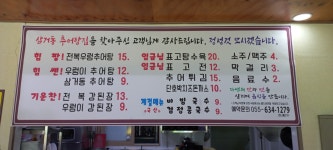 삼거동 추어탕집을 찾아주신 고객님께 감사드립니다. 정성껏 모시겠습니다.
힘 짱! 전복우렁추어탕 15. 임금님 표고탕수육 20. 소주/맥주 4.
힘 쎈! 우렁이 추어탕 12. 임금님 표고전 12. 막걸리 3.
삼거동 추어탕 9. 추어튀김 15. 음료수 2.
단호박치즈돈까스 10.
기운찬! 전복 강된장 13. 계절메뉴 비빔국수 9.
우렁이 강된장 9. 검정콩국수 9.
예약문의) 055-634-1279